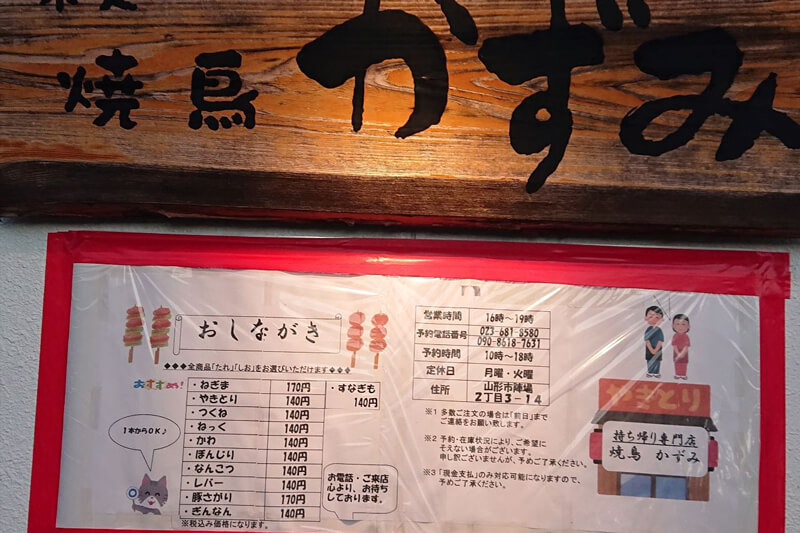 焼鳥 かずみ
おしながき
◆◆◆全商品「たれ」「しお」をお選びいただけます◆◆◆
おすすめ!
・ねぎま 170円
・やきとり 140円
・つくね 140円
・ねっく 140円
・かわ 140円
・ぼんじり 140円
・なんこつ 140円
・レバー 140円
・豚さがり 170円
・ぎんなん 140円
・すなぎも
140円
※税込み価格になります。
1本からOK♪
お電話・ご来店
心より、お待ち
しております。
営業時間 16時~19時
予約電話番号 023-681-8580
090-8618-7631
予約時間 10時~18時
定休日 月曜・火曜
住所 山形市陣場
2丁目3-14
※1 多数ご注文の場合は「前日」まで
ご連絡をお願い致します。
※2 予約・在庫状況により、ご希望に
そえない場合がございます。
申し訳ございませんが、予めご了承ください。
※3 「現金支払」のみ対応可能になりますので、
予めご了承ください。
やきとり
持ち帰り専門店
焼鳥 かずみ